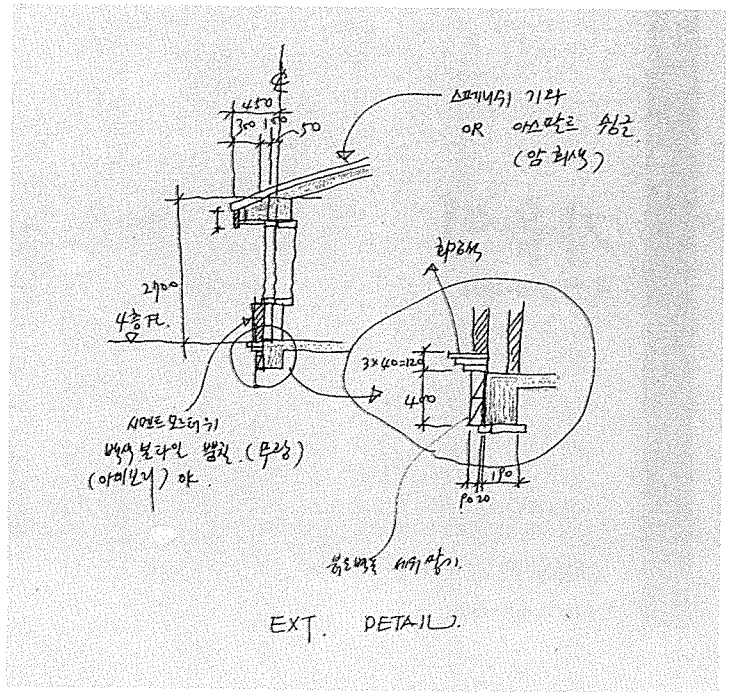 ℄
450
300 150 50
스페니쉬 기와
OR 아스팔트 슁글
(암 회색)
화강석
2700
4층 FL.
3×40=120
400
시멘트 모르터위
백색 본타일 뿜칠 (무광)
(아이보리)
90 20 190
붉은벽돌 세워쌓기.
EXT. DETAIL.